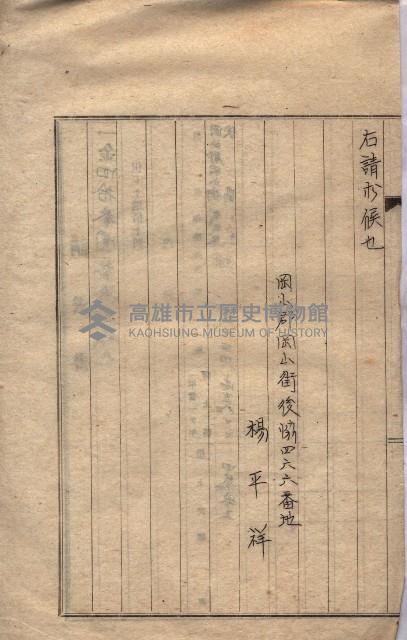 右請求候也
岡山郡岡山街後協四六六番地
楊平祥
高雄市立歷史博物館
KAOHSIUNG MUSEUM OF HISTORY